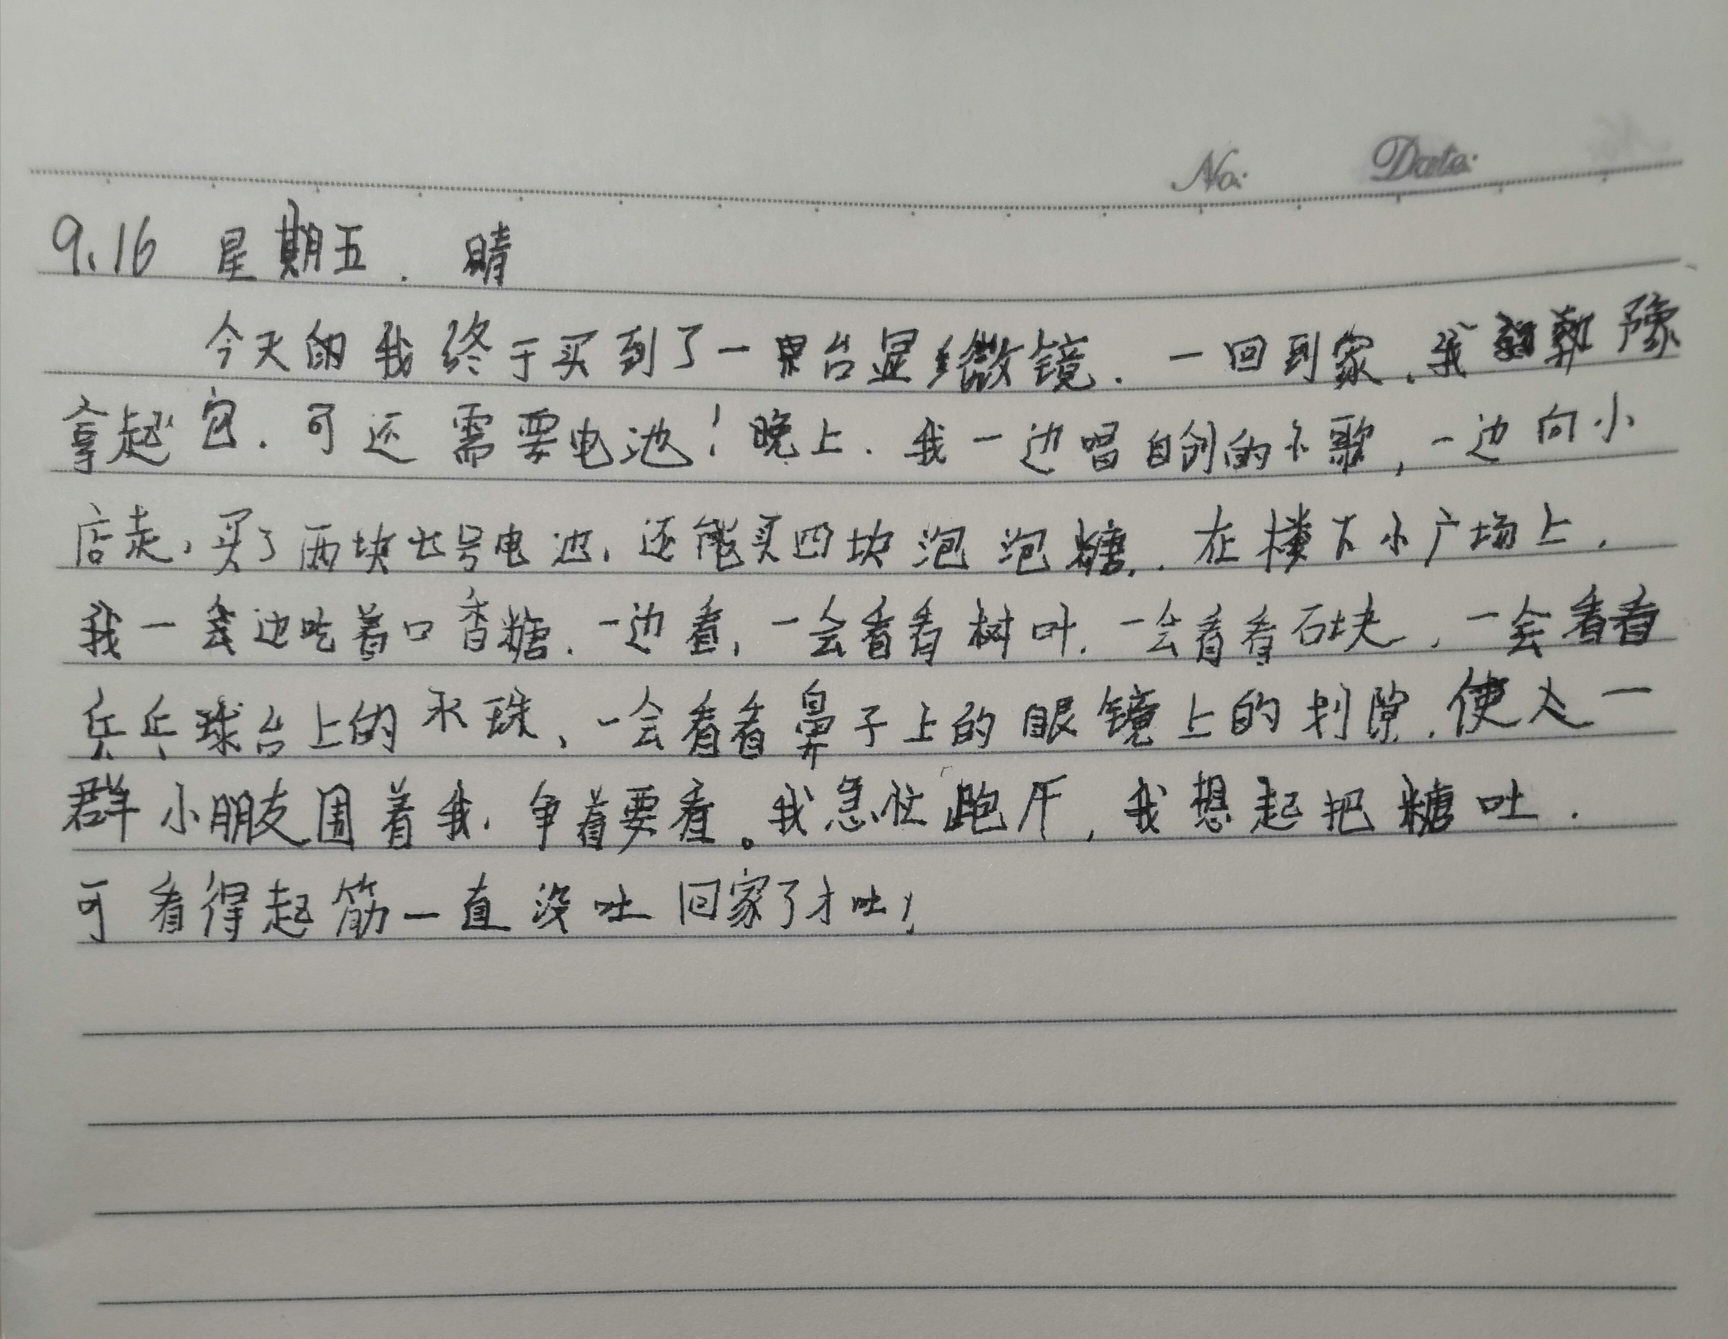 No: Date:
9.16 星期五. 晴
今天的我终于买到了一台显微镜.一回到家.我
拿起它.可还需要电池！晚上.我一边唱自创的小歌,一边向小
店走,买了两块七号电池,还能买四块泡泡糖.在楼下小广场上.
我一边吃着口香糖.一边看,一会看看树叶.一会看看石块,一会看看
乒乓球台上的水珠、一会看看鼻子上的眼镜上的划隙.使人一
群小朋友围着我.争着要看。我急忙跑开,我想起把糖吐.
可看得起筋一直没吐 回家了才吐!